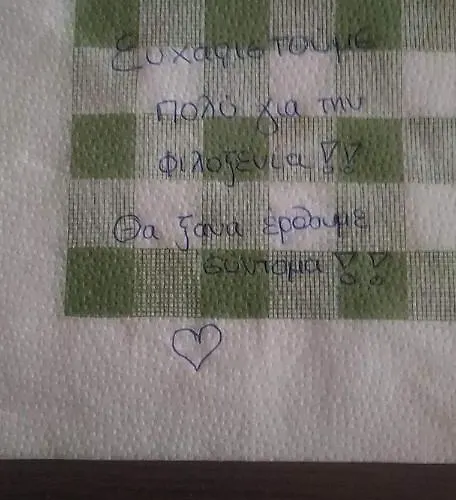 Ευχαριστουμε
πολύ για την
φιλοξενια!!
Θα ξανα έρθουμε
συντομα!!